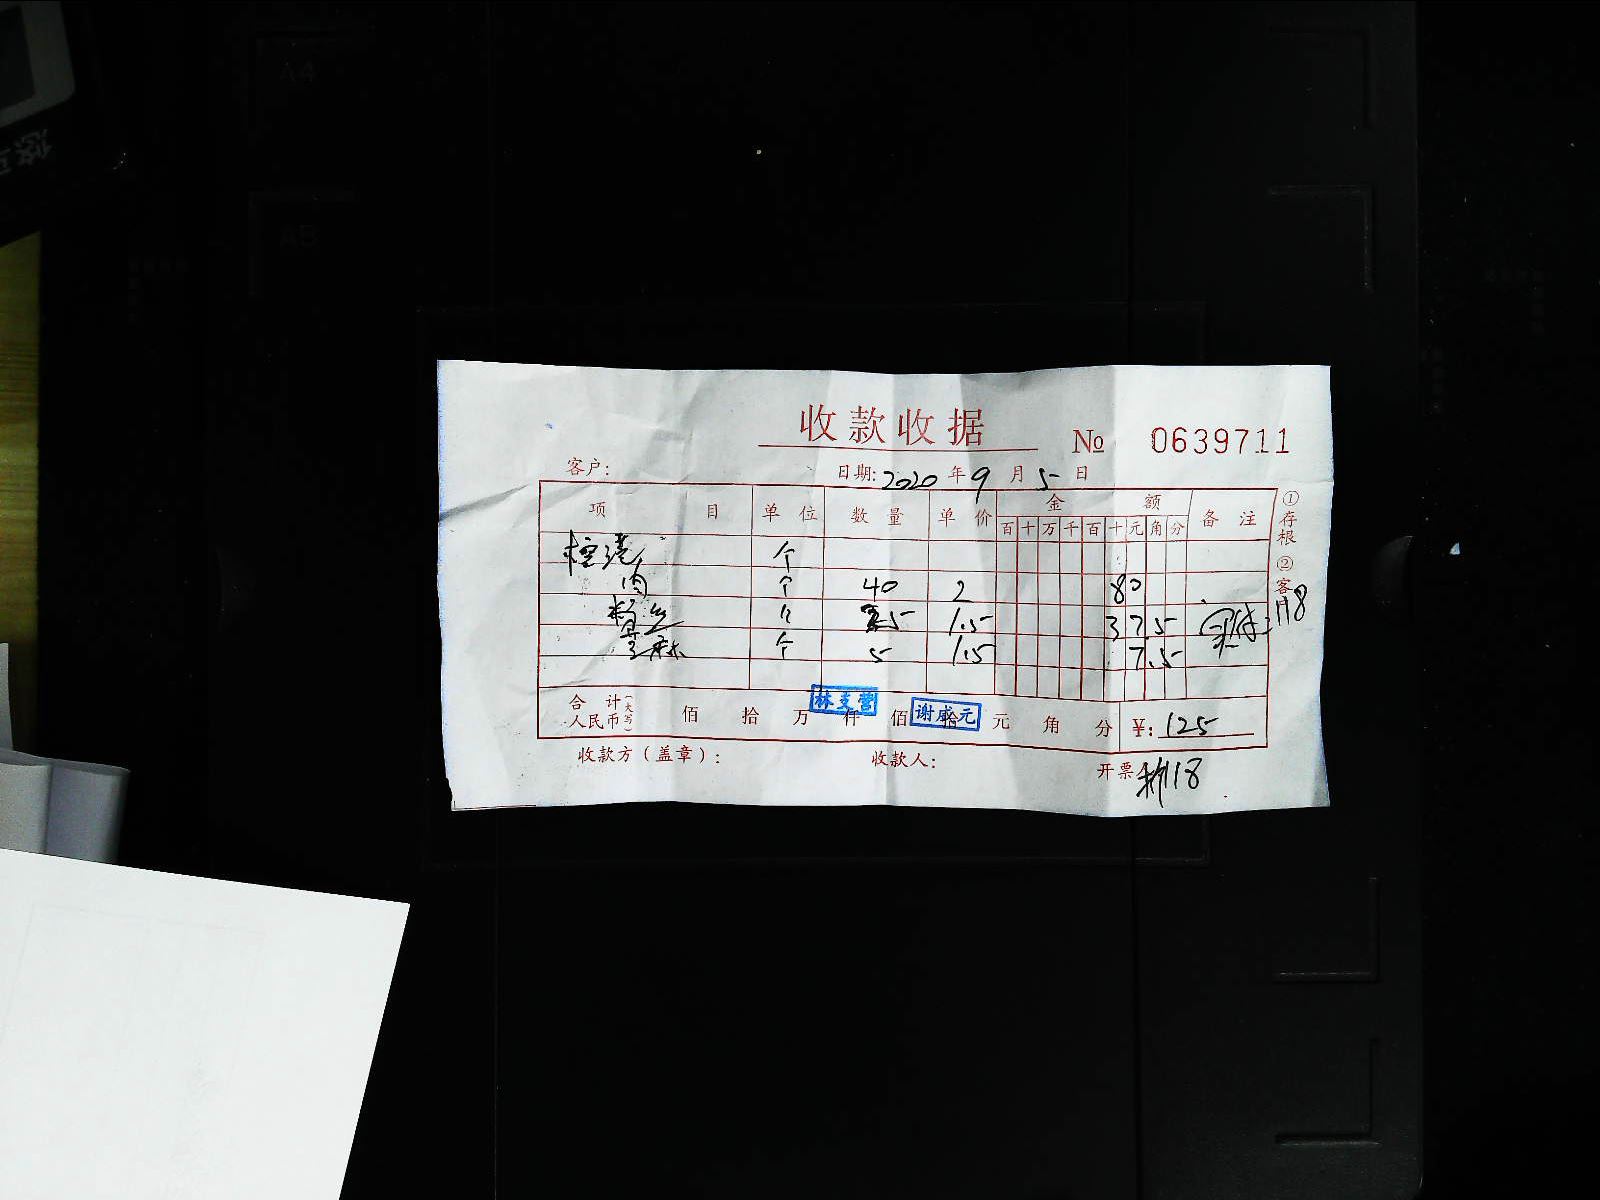 A4
A5
收款收据
№ 0639711
客户:
日期: 2020 年 9 月 5 日
项 目 单位 数量 单价 金额 备注
百 十 万 千 百 十 元 角 分
个
肉 个 40 2 80
粉丝 个 25 1.5 37.5 实付: 118
个 5 1.5 7.5
合计 人民币 (大写) 佰 拾 万 仟 佰 拾 元 角 分 ¥: 125
林支营
谢盛元
收款方(盖章): 收款人: 开票
118
①存根 ②客